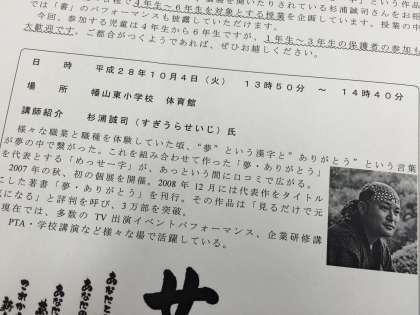 」という作品
開いたりされている杉浦誠司さんをお招
4年生～6年生を対象とする授業を企画しています。授業の中
では「書」のパフォーマンスも披露していただけます。
今回、参加する児童は4年生から6年生ですが、1年生～3年生の保護者の参加も
大歓迎です。ご都合がつくようであれば、ぜひお越しください。
日 時 平成28年10月4日（火） 13時50分 ～ 14時40分
場 所 幡山東小学校 体育館
講師紹介 杉浦誠司（すぎうらせいじ）氏
様々な職業と職種を体験していた頃、“夢”という漢字と“ありがとう”という言葉
が夢の中で繋がった。これを組み合わせて作った「夢・ありがとう」
を代表とする「めっせー字」が、あっという間に口コミで広がる。
2007年の秋、初の個展を開催。2008年12月には代表作をタイトル
にした著書「夢・ありがとう」を刊行。その作品は「見るだけで元
気になる」と評判を呼び、3万部を突破。
現在では、多数のTV出演イベントパフォーマンス、企業研修講
PTA・学校講演など様々な場で活躍している。